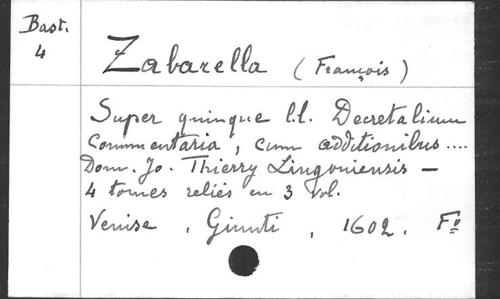 Bast.
4
Zabarella (François)
Super quinque l.l. Decretalium
Commentaria, cum additionibus....
Dom. Jo. Thierry Lingoniensis —
4 tomes reliés en 3 vol.
Venise, Giunti, 1602. Fº